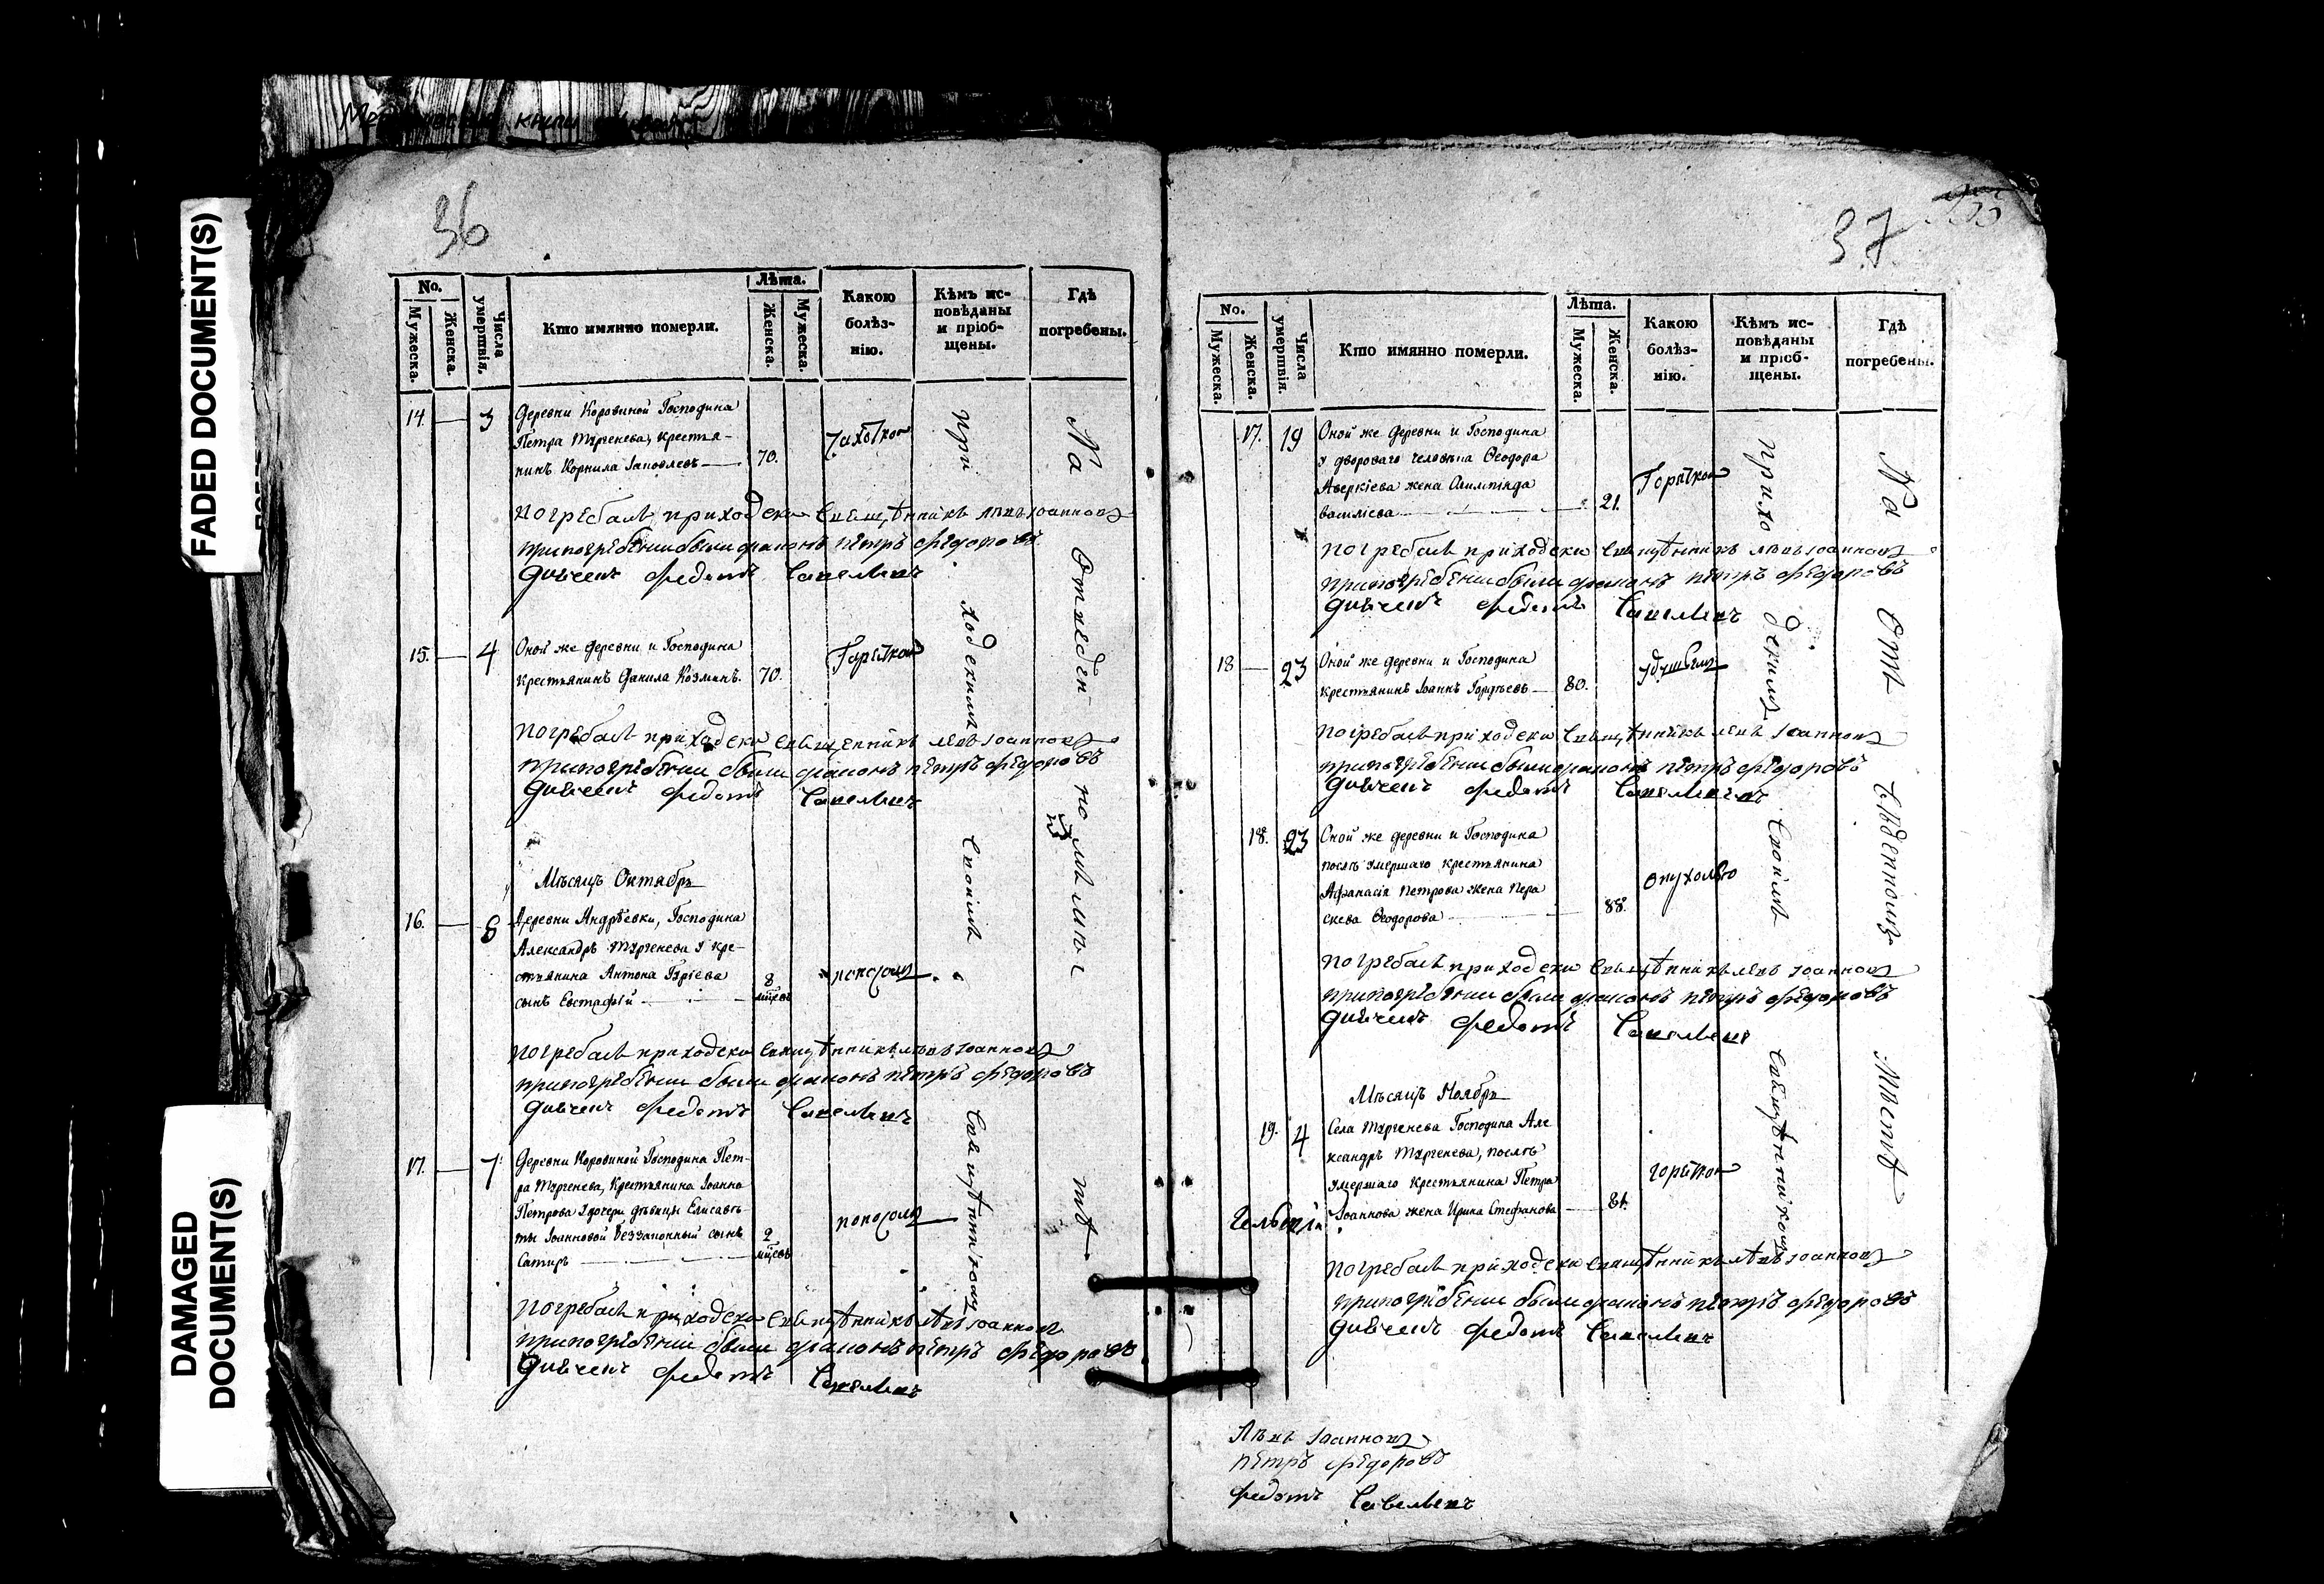 FADED DOCUMENT(S)
DAMAGED
DOCUMENT(S)
36
No.
Мужеска.
Женска.
Числа умертвія.
Кто имянно померли.
Лѣта.
Женска.
Мужеска.
Какою
болѣз-
нію.
Кѣмъ ис-
повѣданы
и пріоб-
щены.
Гдѣ
погребены.
14.
3
Деревни Коровиной Господина
Петра Тургенева, крестья-
нинъ Корнила Iаковлевъ
70.
Чахоткою
погребалъ приходски Священникъ левъ Iоанновъ
припогребении были диаконъ петръ федоровъ
Дьячекъ федотъ Савельевъ
15.
4
Оной же деревни и Господина
крестьянинъ Данила Козминъ.
70.
Гарячкою
погребалъ приходски Священникъ левъ Iоанновъ
припогребении были диаконъ петръ федоровъ
Дьячекъ федотъ Савельевъ
Мѣсяцъ Октябрь
16.
8
Деревни Андрѣевки, Господина
Александръ Тургенева у кре-
стьянина Антона Гурiева
сынъ Евстафiй
8
мцовъ
поносомъ
погребалъ приходски Священникъ левъ Iоанновъ
припогребении были диаконъ петръ федоровъ
Дьячекъ федотъ Савельевъ
17.
7
Деревни Коровиной Господина Пет-
ра Тургенева, Крестьянина Iоанна
Петрова у дочери дѣвицы Елисаве-
ты Iоанновой беззаконный сынъ
Сатиръ
2
мцовъ
поносомъ
погребалъ приходски Священникъ левъ Iоанновъ
припогребении были диаконъ петръ федоровъ
Дьячекъ федотъ Савельевъ
при
ходскимъ
Своимъ
Священникомъ
На
Отведен
номъ
мѣстѣ
37
No.
Мужеска.
Женска.
Числа умертвія.
Кто имянно померли.
Лѣта.
Мужеска.
Женска.
Какою
болѣз-
нію.
Кѣмъ ис-
повѣданы
и пріоб-
щены.
Гдѣ
погребены.
17.
19
Оной же деревни и Господина
у двороваго человѣка Ѳеодора
Аверкiева жена Олимпiяда
василiева
21.
Горячкою
погребалъ приходски Священникъ левъ Iоанновъ
припогребении были диаконъ петръ федоровъ
Дьячекъ федотъ Савельевъ
18
23
Оной же деревни и Господина
крестьянинъ Iоаннъ Гордѣевъ
80.
удушьемъ
погребалъ приходски Священникъ левъ Iоанновъ
припогребении были диаконъ петръ федоровъ
Дьячекъ федотъ Савельевъ
18.
23
Оной же деревни и Господина
послѣ умершаго крестьянина
Афанасiя Петрова жена Пара
скева Ѳеодорова
88.
опухолью
погребалъ приходски Священникъ левъ Iоанновъ
припогребении были диаконъ петръ федоровъ
Дьячекъ федотъ Савельевъ
Мѣсяцъ Ноябрь
19.
4
Села Тургенева Господина Але
ксандръ Тургенева, послѣ
умершаго Крестьянина Петра
Iоаннова жена Ирина Стефанова
81.
горячкою
погребалъ приходски Священникъ левъ Iоанновъ
припогребении были диаконъ петръ федоровъ
Дьячекъ федотъ Савельевъ
прихо
дскимъ
Своимъ
Священникомъ
На
Отведенномъ
Мѣстѣ
Левъ Iоанновъ
петръ федоровъ
федотъ Савельевъ